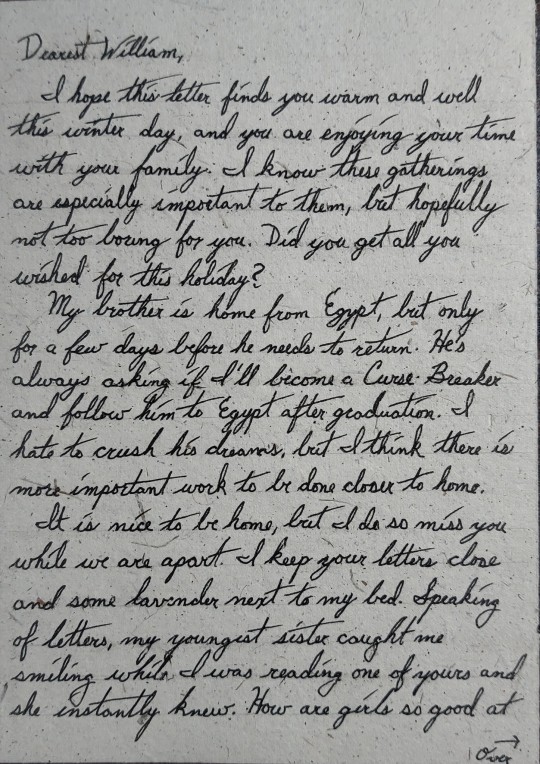 Dearest William,
I hope this letter finds you warm and well
this winter day, and you are enjoying your time
with your family. I know these gatherings
are especially important to them, but hopefully
not too boring for you. Did you get all you
wished for this holiday?
My brother is home from Egypt, but only
for a few days before he needs to return. He's
always asking if I'll become a Curse-Breaker
and follow him to Egypt after graduation. I
hate to crush his dreams, but I think there is
more important work to be done closer to home.
It is nice to be home, but I do so miss you
while we are apart. I keep your letters close
and some lavender next to my bed. Speaking
of letters, my youngest sister caught me
smiling while I was reading one of yours and
she instantly knew. How are girls so good at
Over →